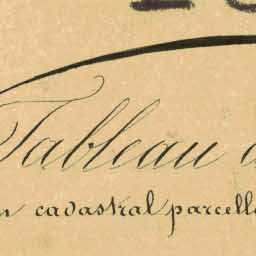 Tableau
cadastral parcell